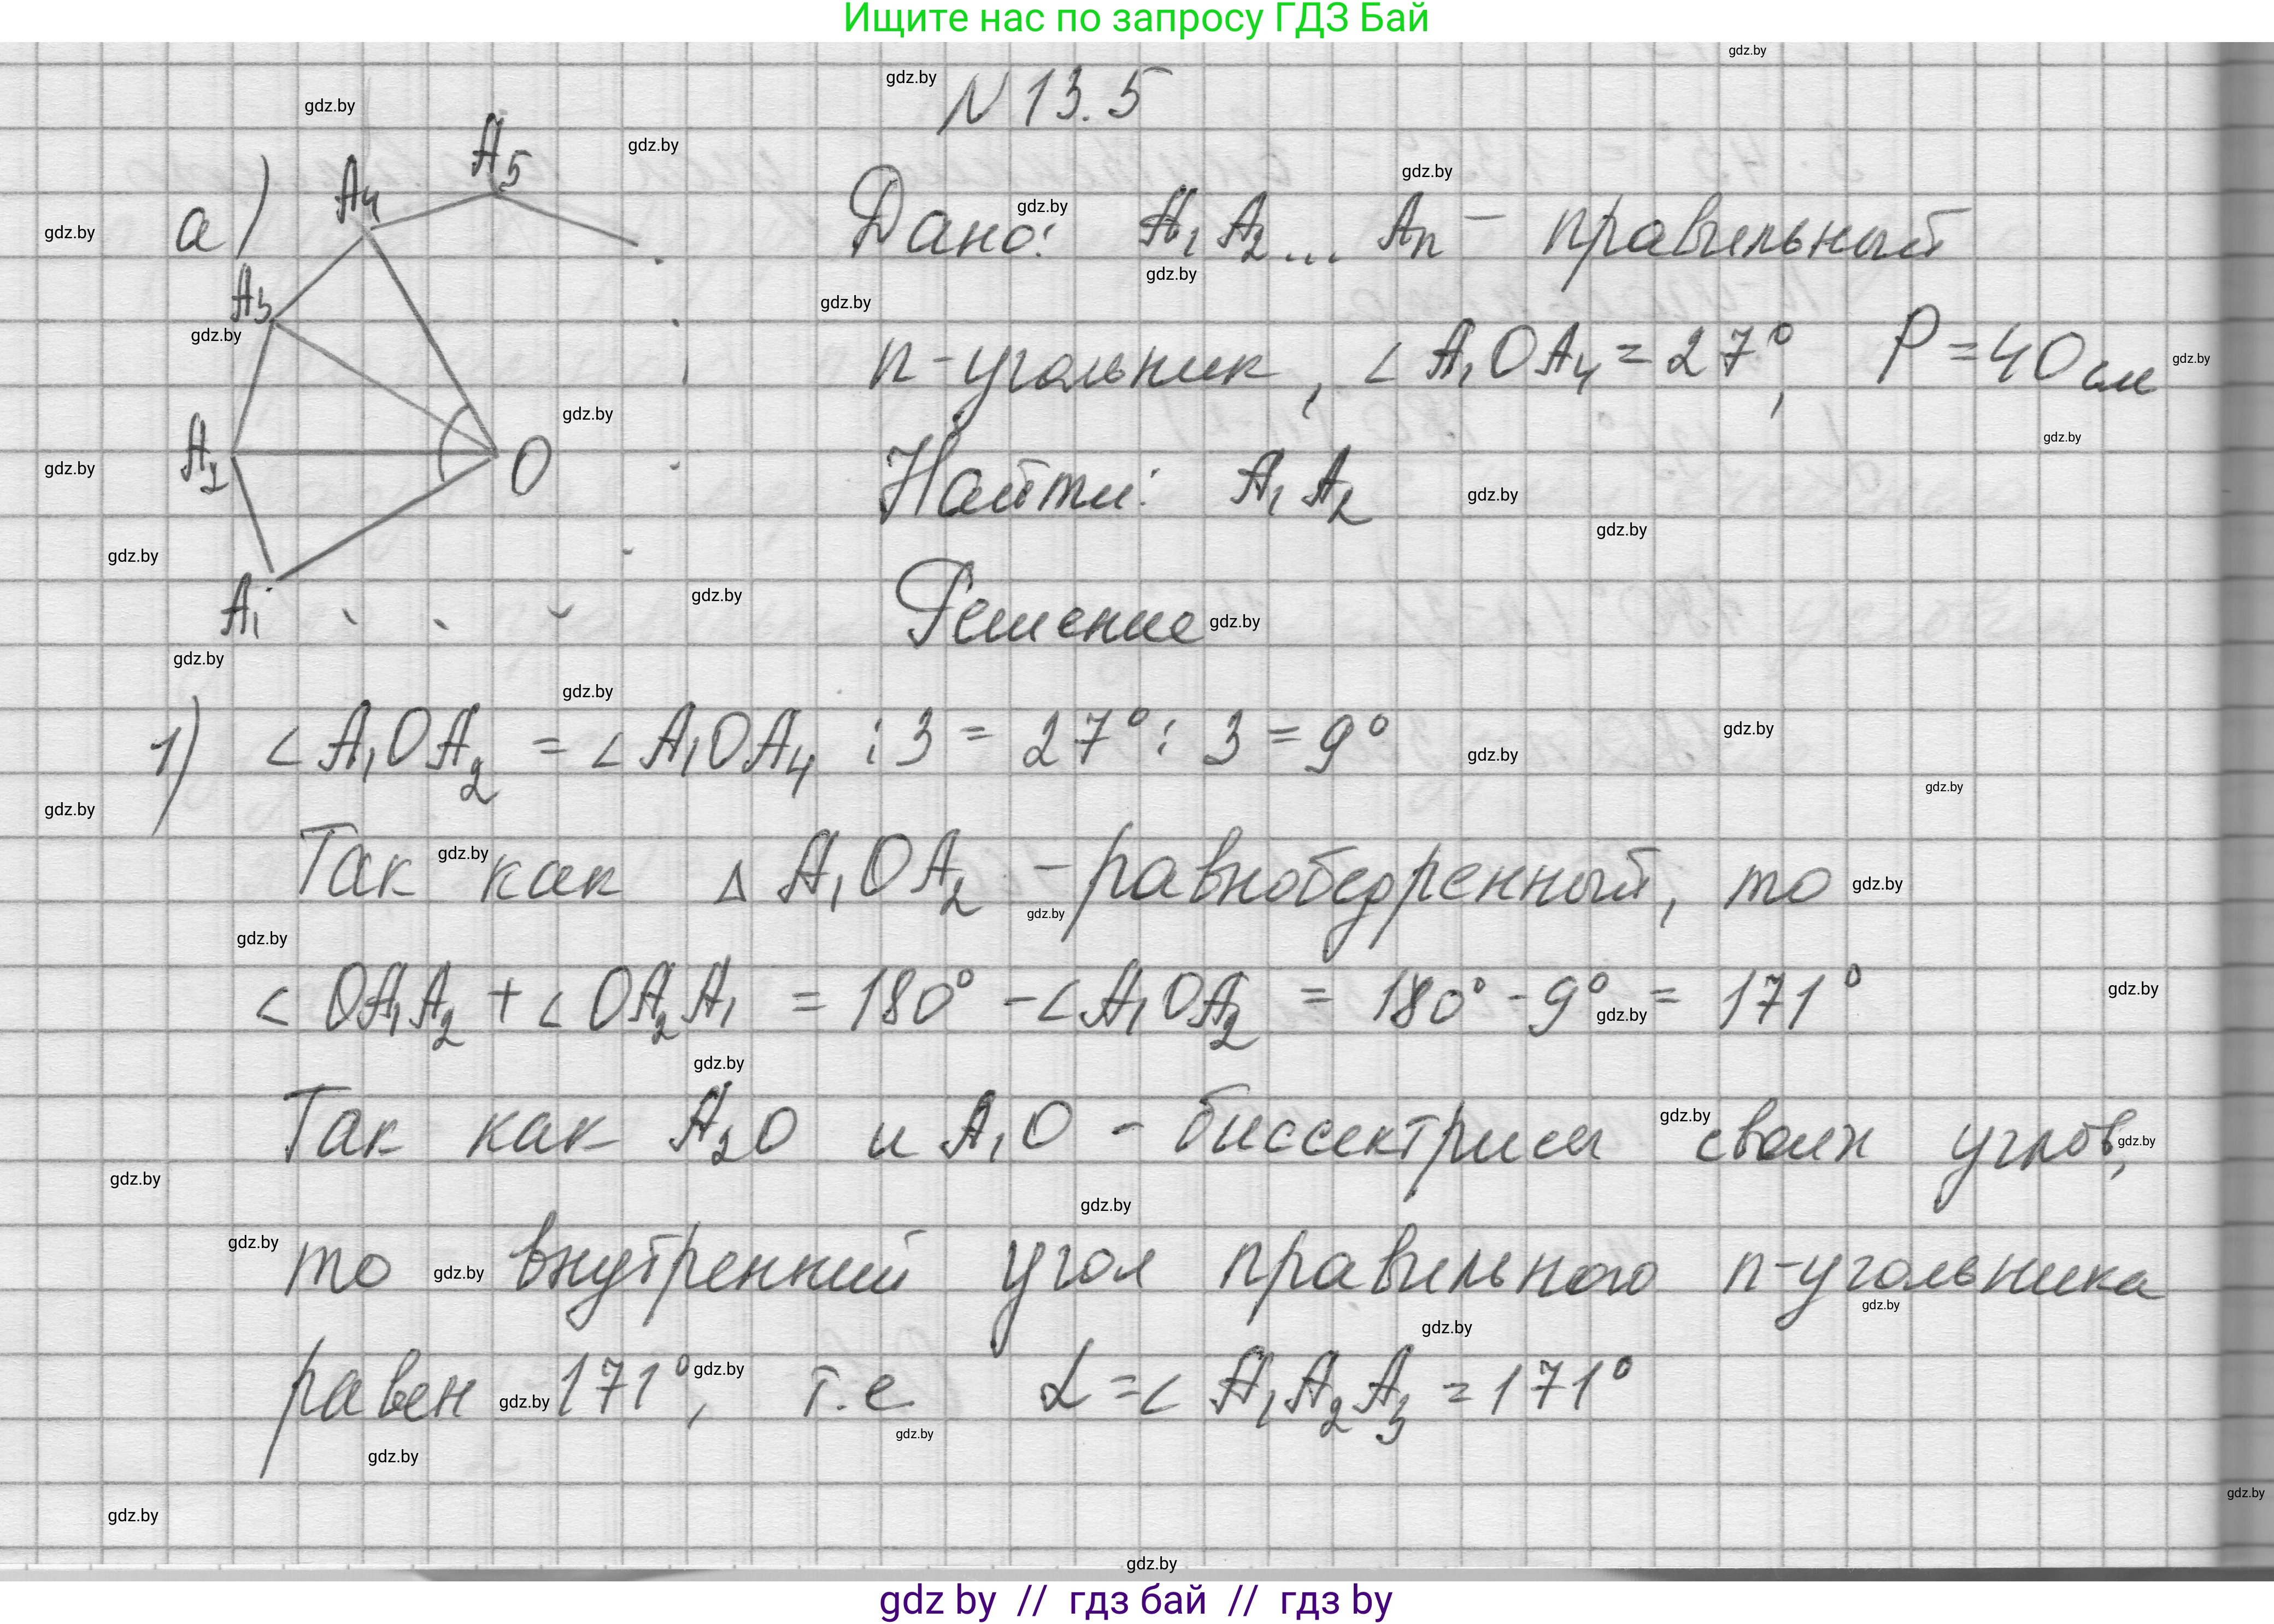 Ищите нас по запросу ГДЗ Бай
N 13.5
а)
A5
A4
A3
A2
A1
O
Дано: A1 A2 ... An — правильный
n-угольник, ∠A1OA4 = 27°, P = 40 см
Найти: A1 A2
Решение
1) ∠A1OA2 = ∠A1OA4 : 3 = 27° : 3 = 9°
Так как Δ A1OA2 - равнобедренный, то
∠OA1A2 + ∠OA2A1 = 180° - ∠A1OA2 = 180° - 9° = 171°
Так как A2O и A1O - биссектрисы своих углов,
то внутренний угол правильного n-угольника
равен 171°, т.е α = ∠A1A2A3 = 171°
gdz by // гдз бай // гдз by
gdz.by